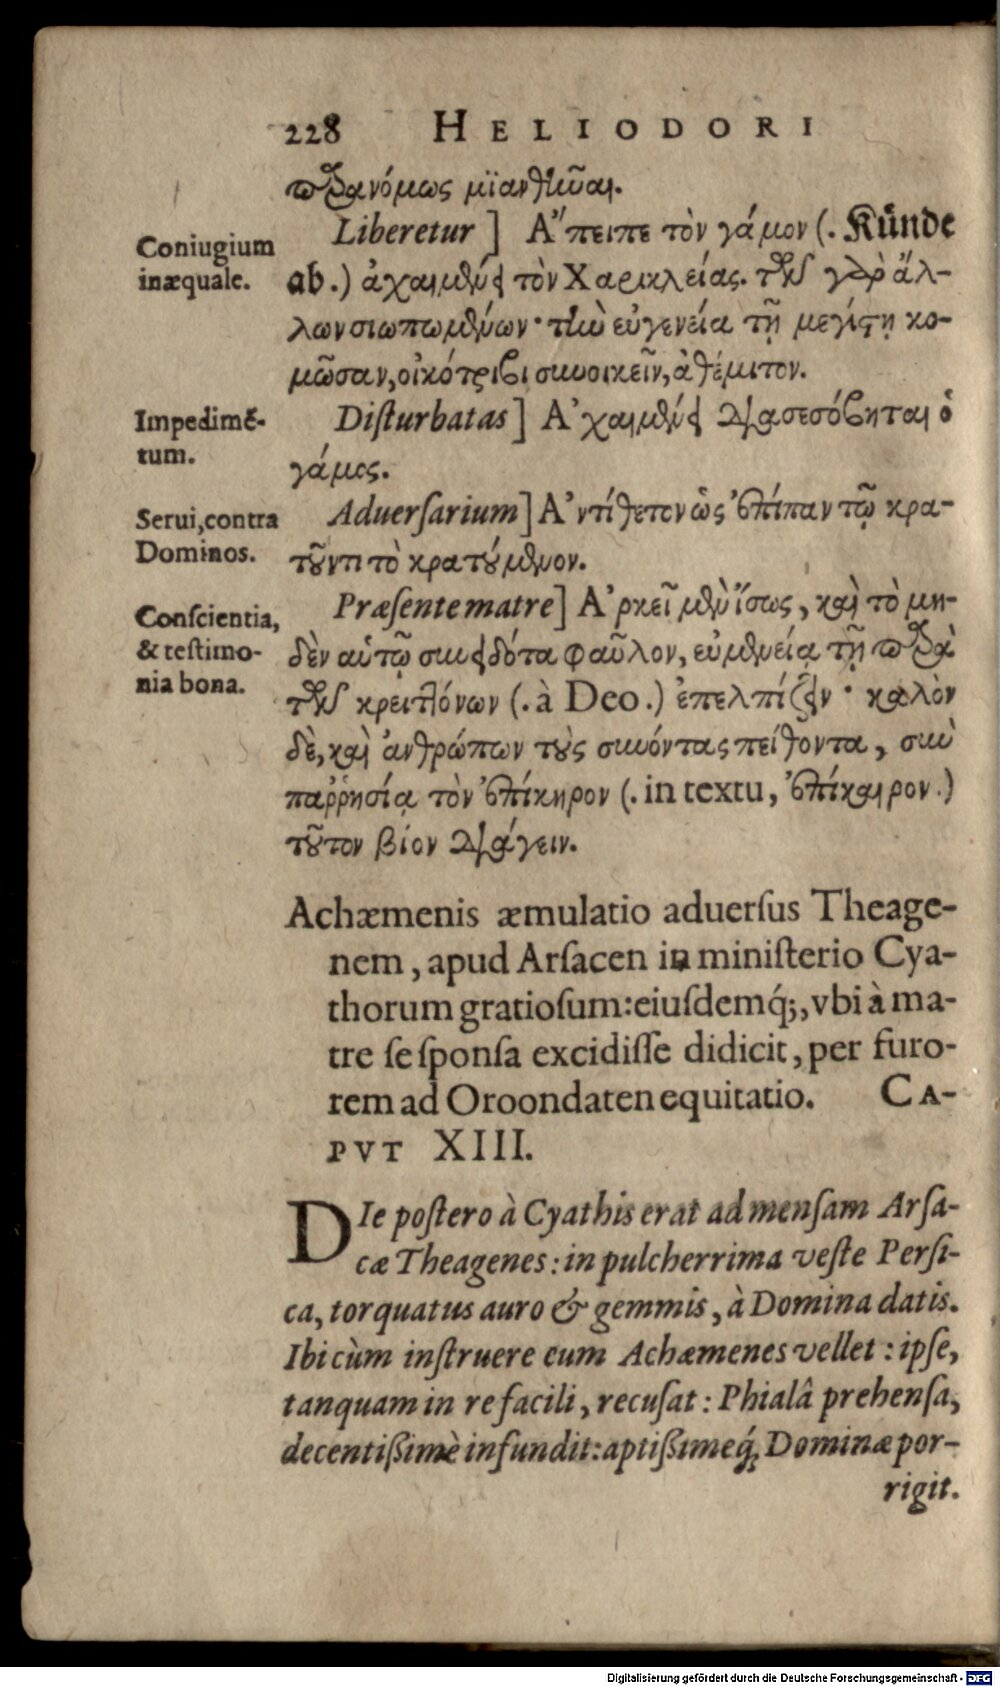 228 HELIODORI
παρανόμως μϊανθῆναι.
Liberetur] Ἄπειπε τὸν γάμον (. Künde
Coniugium
inæquale.
ab.) ἀχαιμένει τὸν Χαρικλείας. τῶν γὰρ ἄλ-
λων σιωπωμένων· τὴν εὐγενείᾳ τῇ μεγίστῃ κο-
μῶσαν, οἰκότριβι συνοικεῖν, ἀθέμιτον.
Disturbatas] Ἀχαιμένει διασεσόβηται ὁ
Impedimē-
tum.
γάμος.
Aduersarium] Ἀντίθετον ὡς ἐπίπαν τῷ κρα-
Serui, contra
Dominos.
τοῦντι τὸ κρατούμενον.
Præsente matre] Ἀρκεῖ μὲν ἴσως, καὶ τὸ μη-
Conscientia,
& testimo-
nia bona.
δὲν αὑτῷ συνειδότα φαῦλον, εὐμενείᾳ τῇ παρὰ
τῶν κρειττόνων (. à Deo.) ἐπελπίζειν· καλὸν
δὲ, καὶ ἀνθρώπων τοὺς συνόντας πείθοντα, σὺν
παῤῥησίᾳ τὸν ἐπίκηρον (. in textu, ἐπίκαιρον.)
τοῦτον βίον διάγειν.
Achæmenis æmulatio aduersus Theage-
nem, apud Arsacen in ministerio Cya-
thorum gratiosum: eiusdemq́;, vbi à ma-
tre se sponsa excidisse didicit, per furo-
rem ad Oroondaten equitatio. CA-
PVT XIII.
DIe postero à Cyathis erat ad mensam Arsa-
cæ Theagenes: in pulcherrima veste Persi-
ca, torquatus auro & gemmis, à Domina datis.
Ibi cùm instruere eum Achæmenes vellet: ipse,
tanquam in re facili, recusat: Phialâ prehensa,
decentißimè infundit: aptißimeq́; Dominæ por-
rigit.
Digitalisierung gefördert durch die Deutsche Forschungsgemeinschaft - DFG